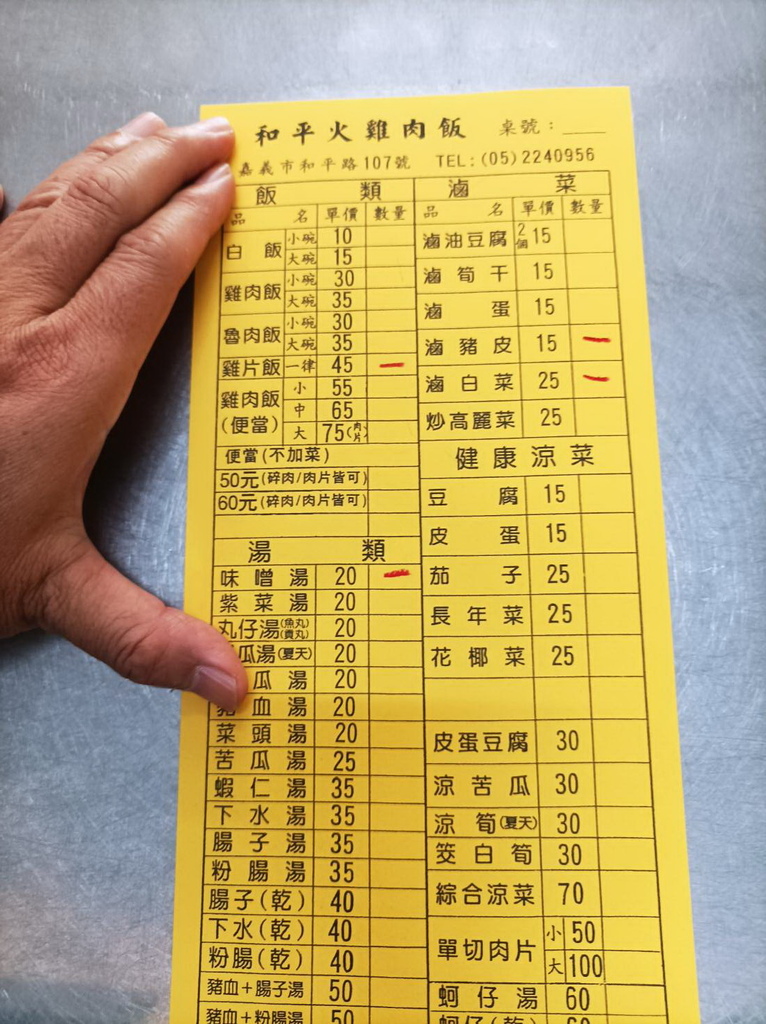 和平火雞肉飯 桌號：
嘉義市和平路107號 TEL:(05)2240956
飯類
品名 單價 數量
白飯 小碗 10
大碗 15
雞肉飯 小碗 30
大碗 35
魯肉飯 小碗 30
大碗 35
雞片飯 一律 45 一
雞肉飯(便當) 小 55
中 65
大 75(肉片)
便當(不加菜)
50元(碎肉/肉片皆可)
60元(碎肉/肉片皆可)
湯類
味噌湯 20 一
紫菜湯 20
丸仔湯(魚丸)(貢丸) 20
瓜湯(夏天) 20
瓜湯 20
豬血湯 20
菜頭湯 20
苦瓜湯 25
蝦仁湯 35
下水湯 35
腸子湯 35
粉腸湯 35
腸子(乾) 40
下水(乾) 40
粉腸(乾) 40
豬血+腸子湯 50
豬血+粉腸湯 50
滷菜
品名 單價 數量
滷油豆腐 2個 15
滷筍干 15
滷蛋 15
滷豬皮 15 一
滷白菜 25 一
炒高麗菜 25
健康涼菜
豆腐 15
皮蛋 15
茄子 25
長年菜 25
花椰菜 25
皮蛋豆腐 30
涼苦瓜 30
涼筍(夏天) 30
筊白筍 30
綜合涼菜 70
單切肉片 小 50
大 100
蚵仔湯 60
蚵仔(乾) 60